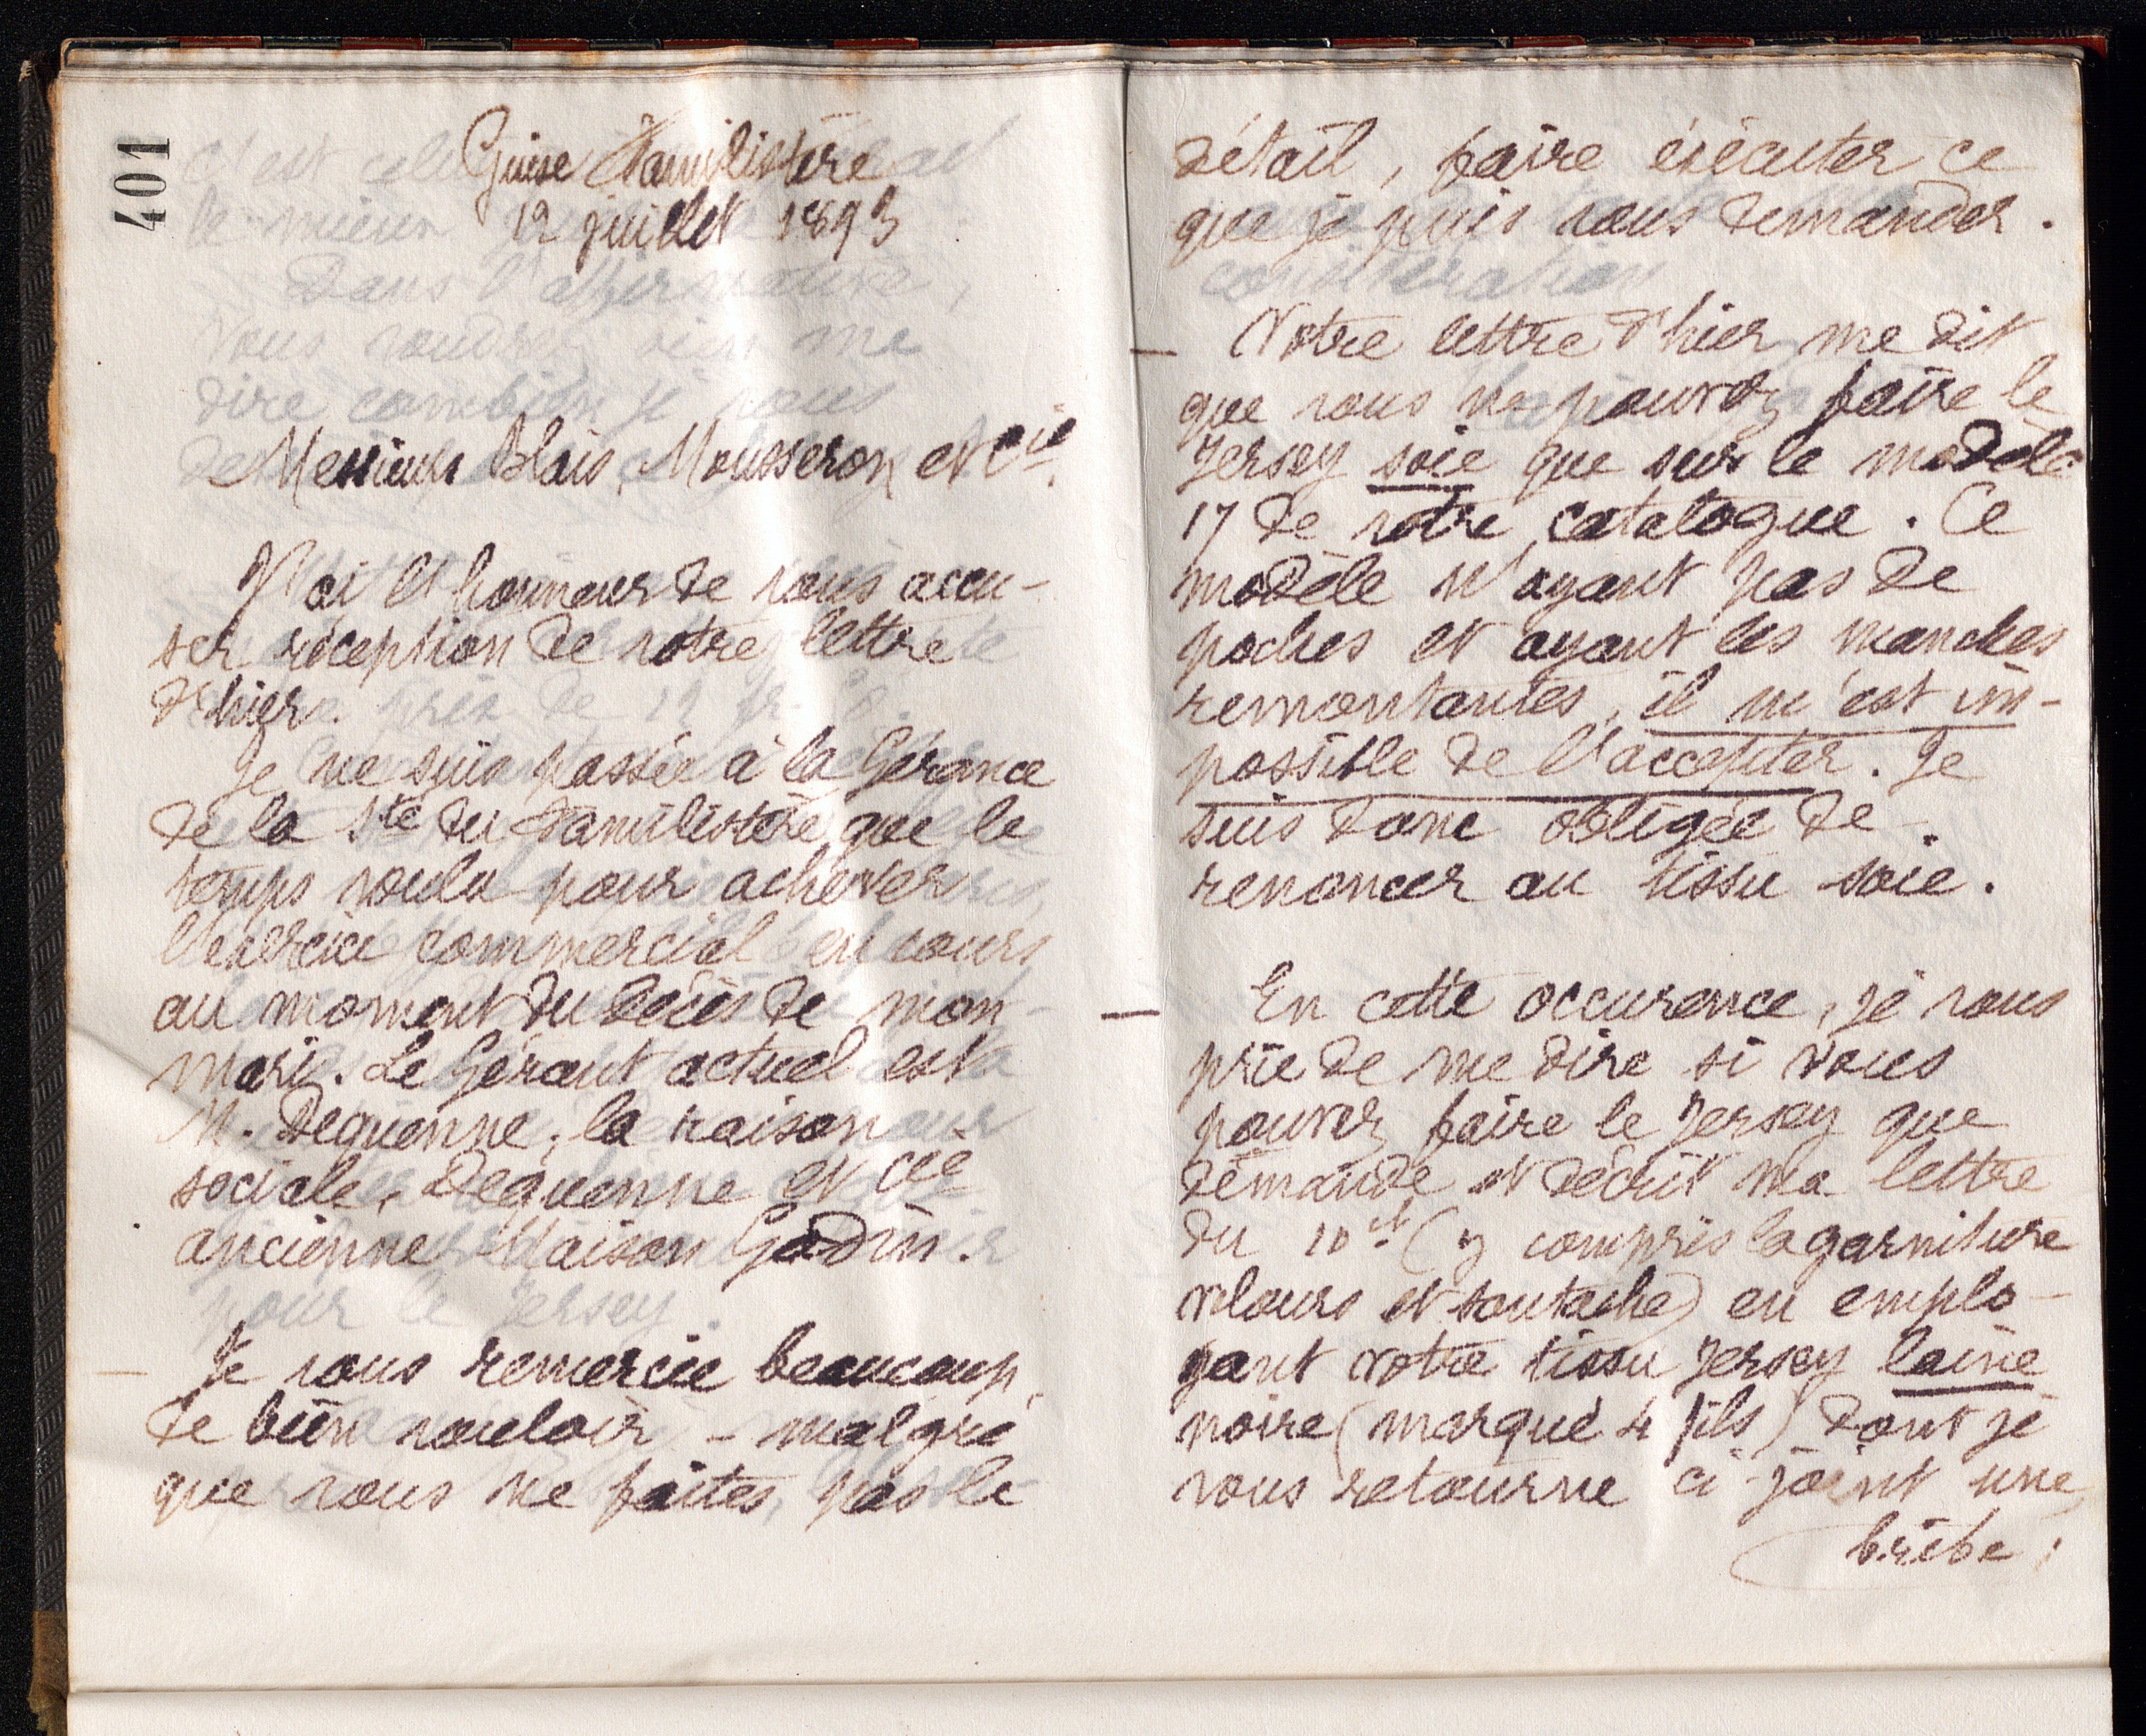 401
Guise Familistère
12 juillet 1893
Messieurs Blais, Mousseron et Cie.
J'ai l'honneur de vous accu-
ser réception de votre lettre
d'hier.
Je ne suis passée à la Gérance
de la Sté du Familistère que le
temps voulu pour achever
l'exercice commercial en cours
au moment du décès de mon
mari. Le Gérant actuel est
M. Dequenne; la raison
sociale, Dequenne et Cie
ancienne Maison Godin.
— Je vous remercie beaucoup
de bien vouloir - malgré
que vous ne faites pas le
détail, faire exécuter ce
que je puis vous demander.
— Votre lettre d'hier me dit
que vous ne pouvez faire le
Jersey soie que sur le modèle
17 de votre catalogue. Ce
modèle n'ayant pas de
poches et ayant les manches
remontantes, il m'est im-
possible de l'accepter. Je
suis donc obligée de
renoncer au tissu soie.
— En cette occurence, je vous
prie de me dire si vous
pouvez faire le Jersey que
demande et décrit ma lettre
du 10 ct (y compris la garniture
velours et soutache) en emplo-
yant votre tissu Jersey laine
noire (marqué 4 fils) dont je
vous retourne ci-joint une
bribe;